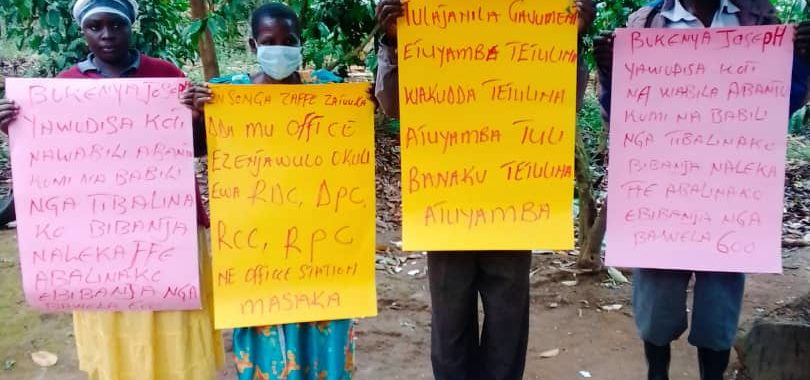 BUKENYA JOSEPH
YAWUDISA KOTI
NAWABILI ABANTU
KUMI NA BABILI
NGA TIBALINA
KO BIBANJA
NALEKA FFE
ABALINAKO
EBIBANJA NGA
BAWELA 600
ENSONGA ZAFFE ZATUUKA
DDA MU OFFICE
EZENJAWULO OKULI
EWA RDC, DPC,
RCC, RPC
NE OFFICE STATION
MASAKA
TULAJANILA GAVUMENTI
ETUYAMBE TETULINA
WAKUDDA TETULINA
ATUYAMBA TULI
BANAKU TETULINA
ATUYAMBA
BUKENYA JOSEPH
YAWUDISA KOTI
NA WABILA ABANTU
KUMI NA BABILI
NGA TIBALINAKO
BIBANJA NALEKA
FFE ABALINAKO
EBIBANJA NGA
BAWELA 600